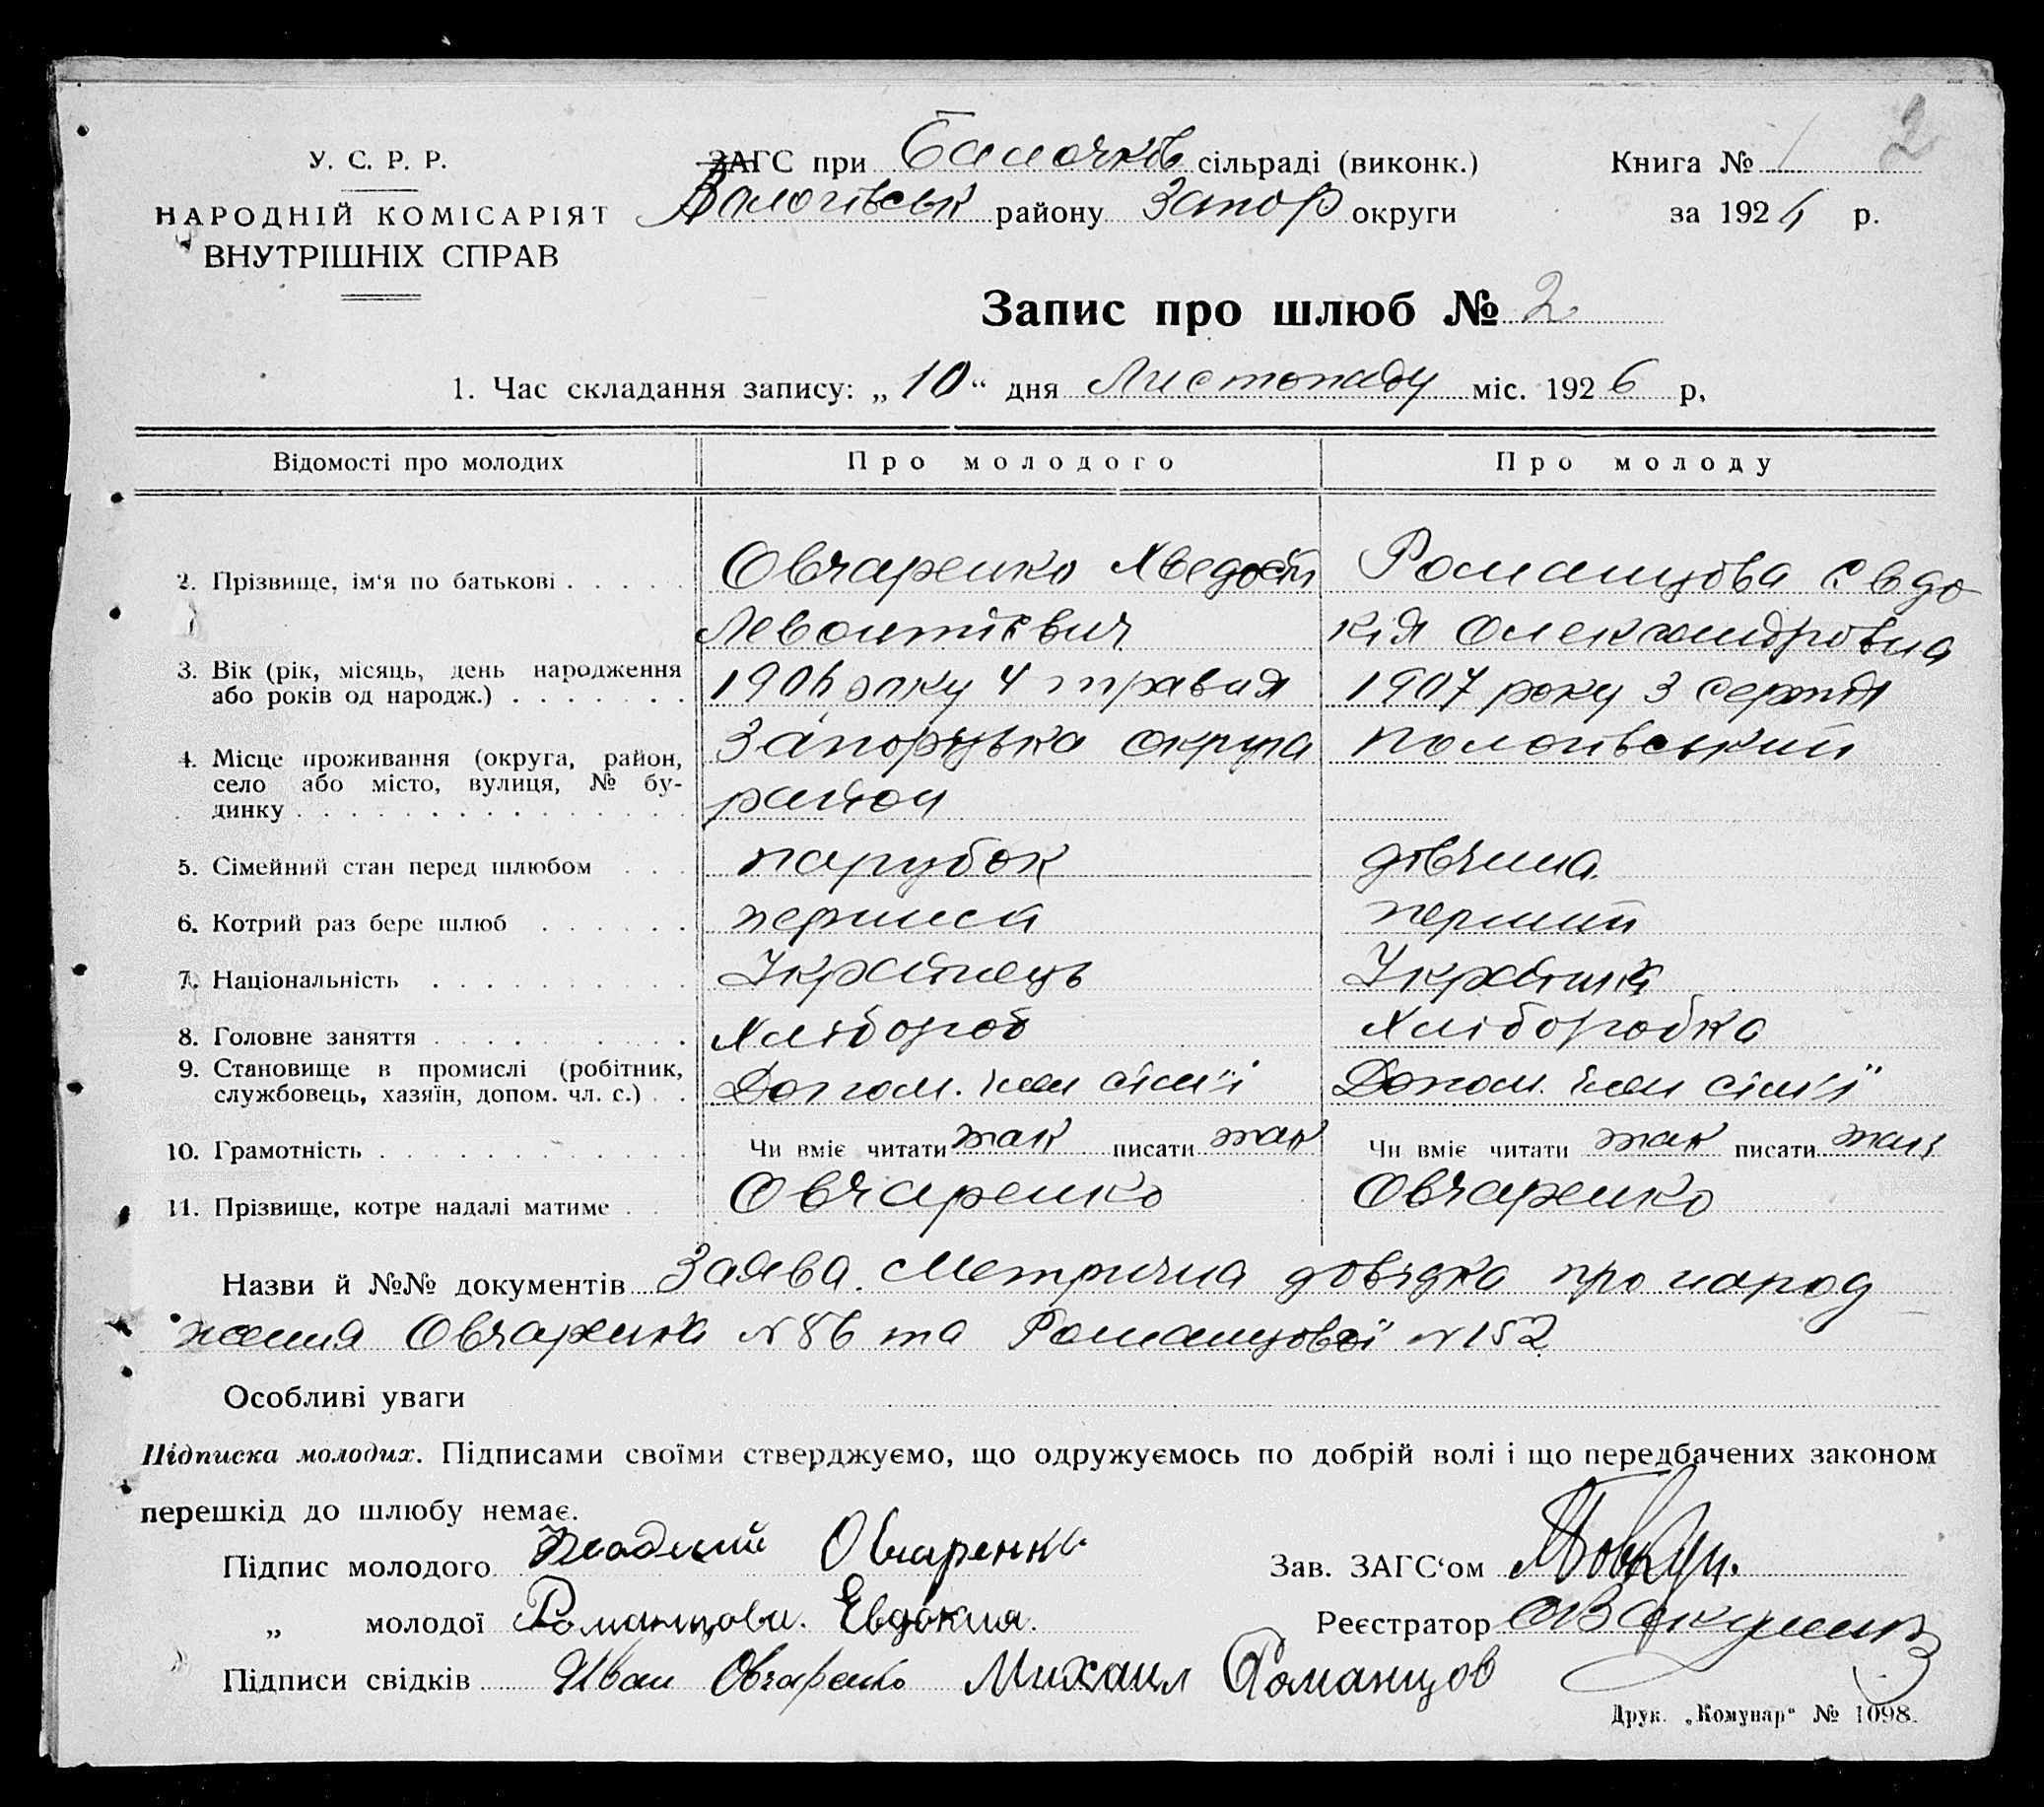 2
У. С. Р. Р.
НАРОДНІЙ КОМІСАРІЯТ
ВНУТРІШНІХ СПРАВ
ЗАГС при Балочків сільраді (виконк.)
Пологівськ району Запор округи
Книга № 1
за 1926 р.
Запис про шлюб № 2
1. Час складання запису: „10“ дня Листопаду міс. 1926 р.
Відомості про молодих Про молодого Про молоду
2. Прізвище, ім'я по батькові
Овчаренко Хведосій
Левонтієвич
Романцова Євдо
кія Олександровна
3. Вік (рік, місяць, день народження
або років од народж.)
1906 року 4 травня
1907 року 3 серпня
4. Місце проживання (округа, район,
село або місто, вулиця, № бу-
динку
Запорізька округа Пологівський
район
5. Сімейний стан перед шлюбом парубок дівчина.
6. Котрий раз бере шлюб перший перший
7. Національність Українець Українка
8. Головне заняття Хлібороб Хліборобка
9. Становище в промислі (робітник,
службовець, хазяїн, допом. чл. с.)
Допом. член сім'ї Допом. член сім'ї
10. Грамотність Чи вміє читати так писати так Чи вміє читати так писати так
11. Прізвище, котре надалі матиме Овчаренко Овчаренко
Назви й №№ документів Заява. Метрична довідка про народ
ження Овчаренка №86 та Романцової №152
Особливі уваги
Підписка молодих. Підписами своїми стверджуємо, що одружуємось по добрій волі і що передбачених законом
перешкід до шлюбу немає.
Підпис молодого Овчаренко
Зав. ЗАГС'ом
„ молодої Романцова. Евдокия.
Реєстратор
Підписи свідків Иван Овчаренко Михаил Романцов
Друк. „Комунар“ № 1098.